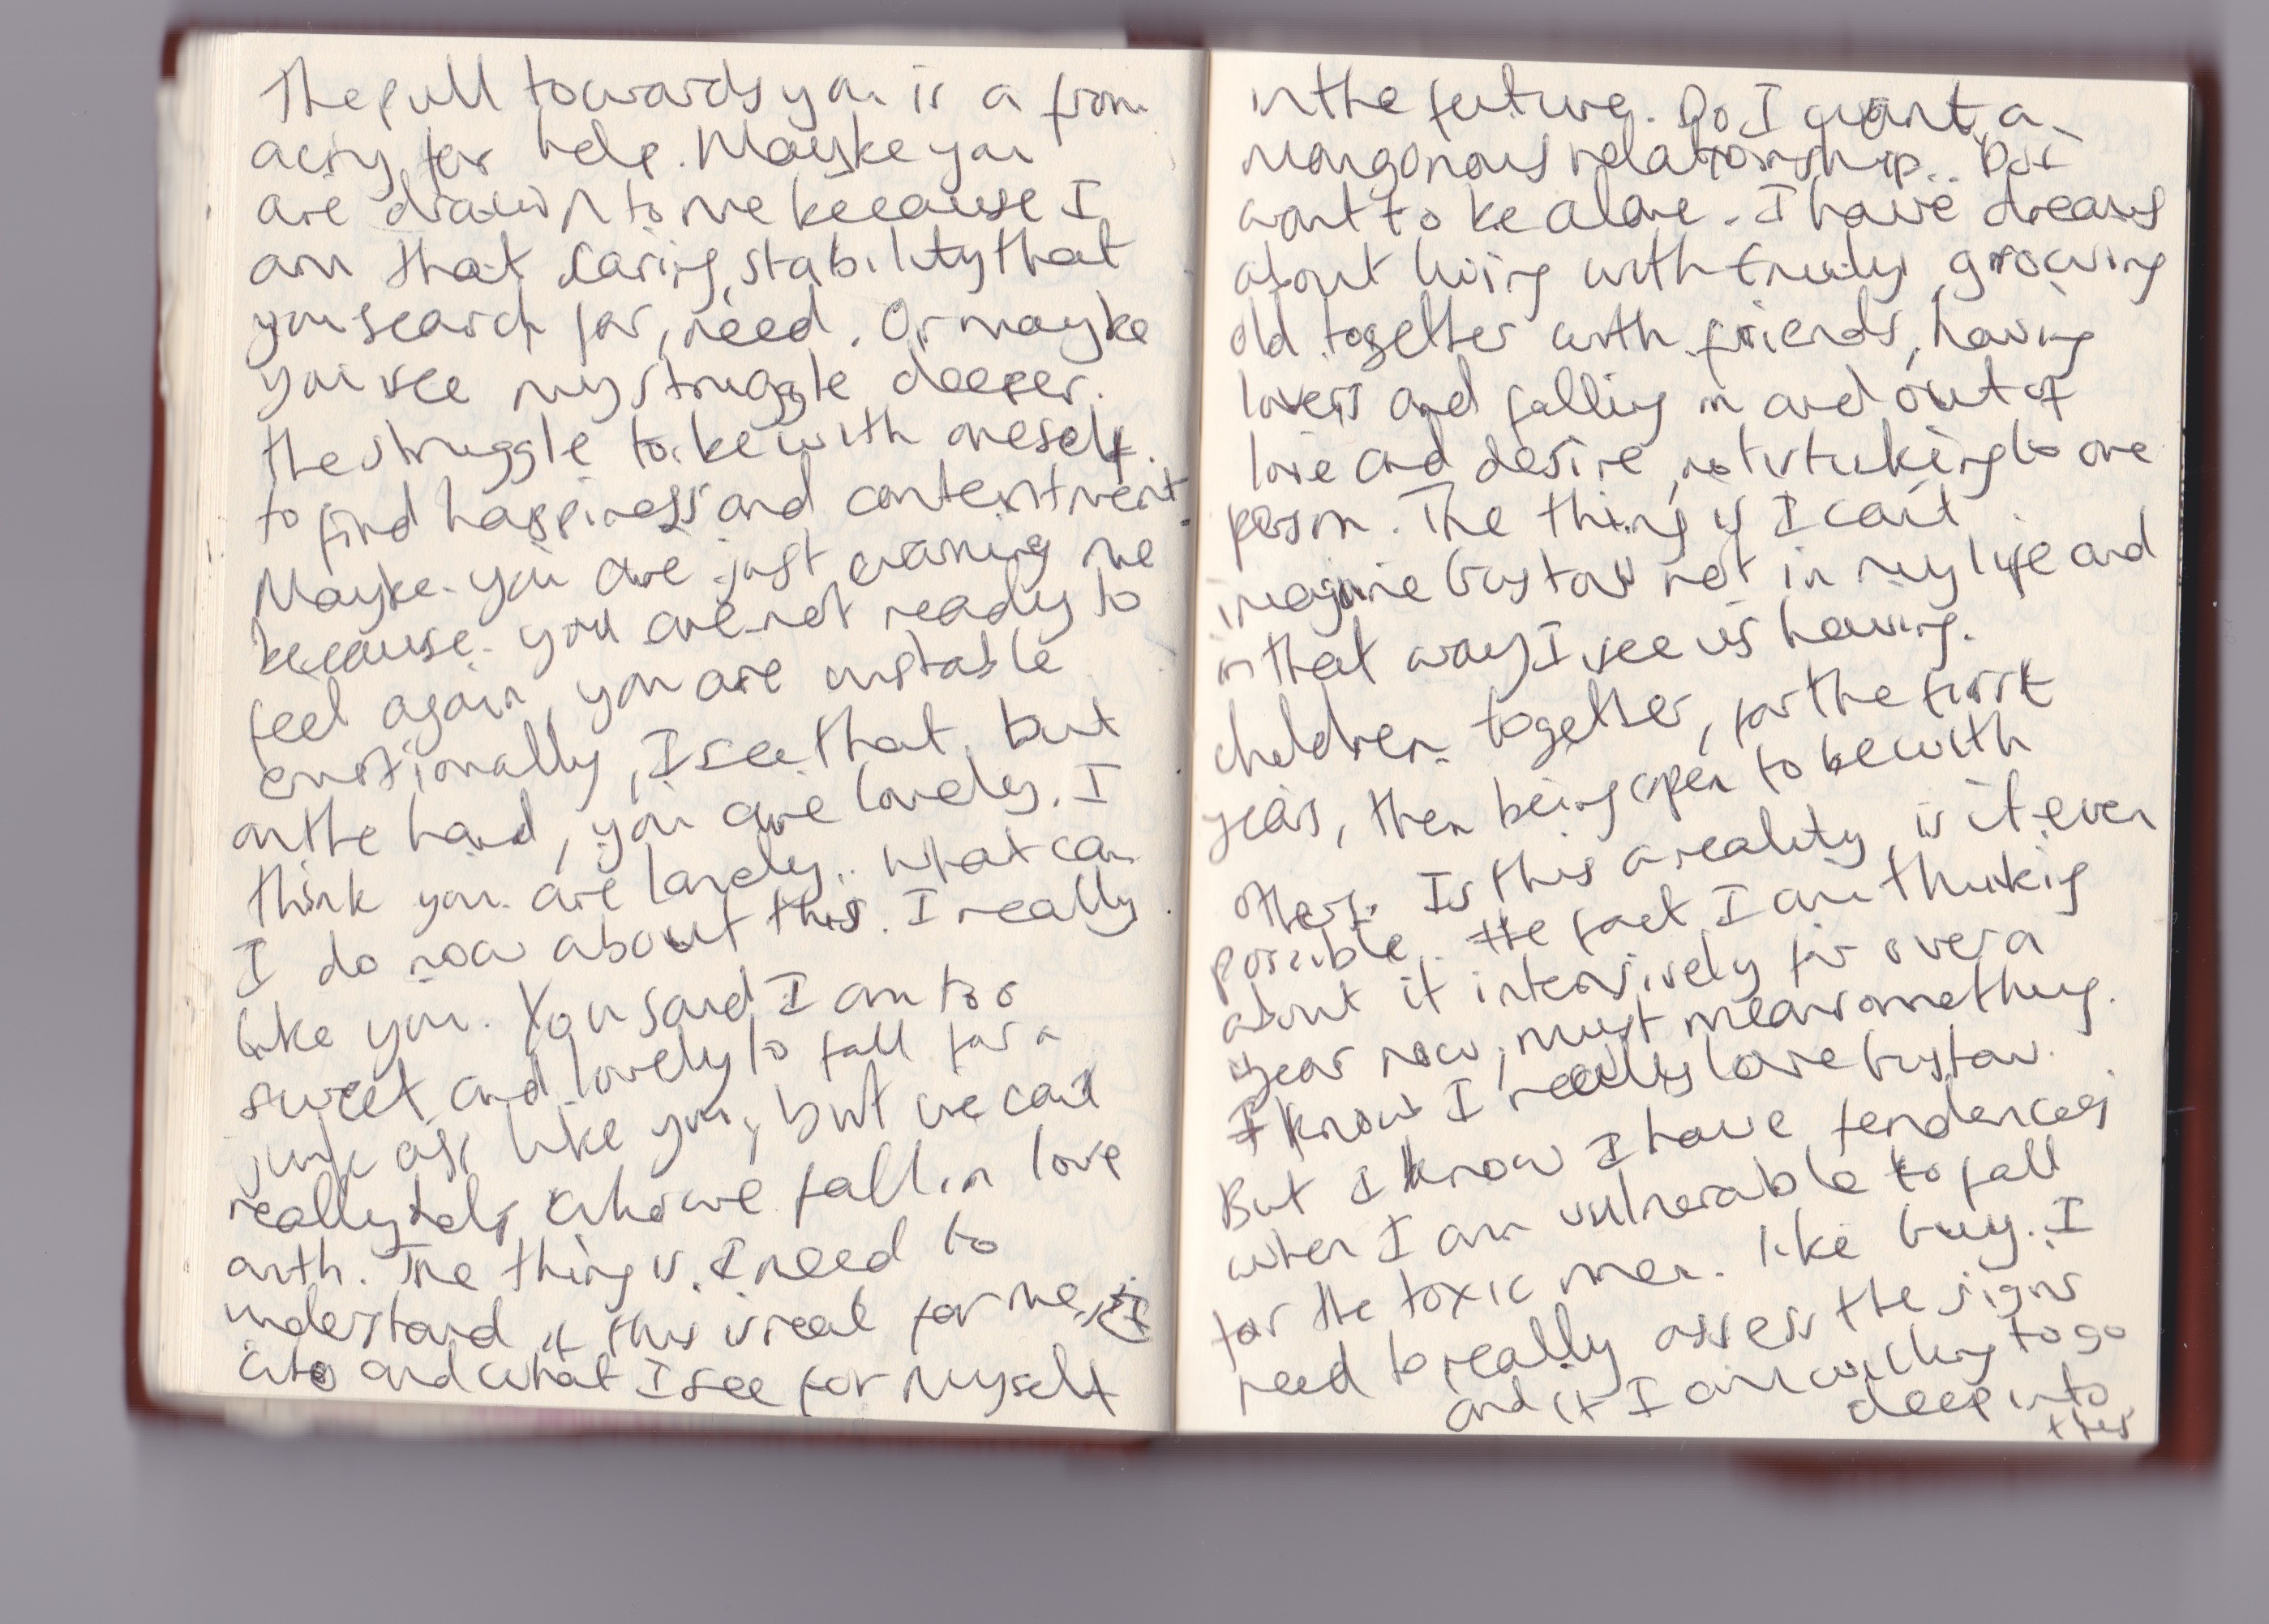 The pull towards you is a from
a cry for help. Maybe you
are drawn to me because I
am that caring, stability that
you search for, need. Or maybe
you see my struggle deeper.
the struggle to be with oneself.
to find happiness and contentment.
Maybe you are just warning me
because you are not ready to
feel again, you are unstable
emotionally, I see that, but
on the hand, you are lovely. I
think you are lovely.. what can
I do now about this. I really
like you. You said I am too
sweet and lovely to fall for a
junk ass like you, but we can't
really help who we fall in love
with. The thing is. I need to
understand if this is real for me
into and what I see for myself
in the future. Do I want a
mongonous relationship.. Do I
want to be alone. I have dreams
about living with family, growing
old together with friends, having
lovers and falling in and out of
love and desire, not sticking to one
person. The thing is I can't
imagine Gustav not in my life and
in that way I see us having.
children together, for the first
years, then being open to be with
others. Is this a reality, is it even
possible.. the fact I am thinking
about it intensively for over a
year now, must mean something.
I know I really love Gustav.
But I know I have tendencies
when I am vulnerable to fall
for the toxic men. like Guy. I
need to really assess the signs
and if I am willing to go
deep into
this